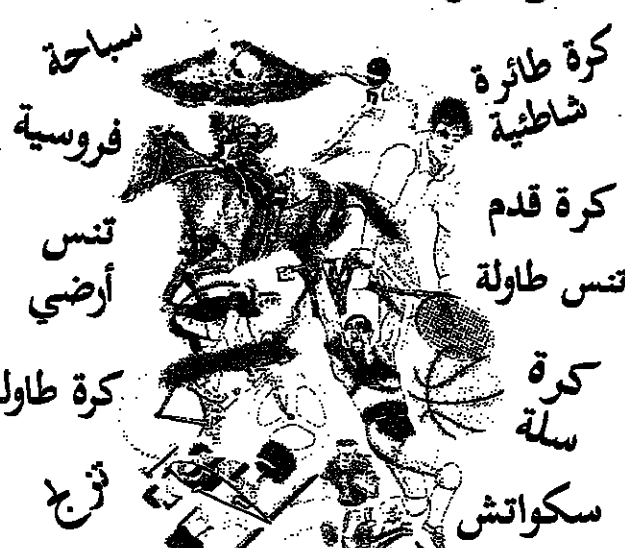 كرة طائرة
شاطئية
كرة قدم
تنس طاولة
كرة
سلة
سكواتش
سباحة
فروسية
تنس
أرضي
كرة طاول
تزلج